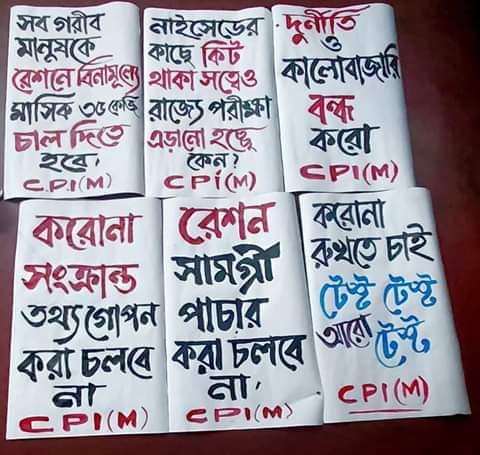 সব গরীব
মানুষকে
রেশনে বিনামূল্যে
মাসিক ৩৫ কেজি
চাল দিতে
হবে.
C.P.I(M)
নাইসেডের
কাছে কিট
থাকা সত্বেও
রাজ্যে পরীক্ষা
এড়ানো হচ্ছে
কেন?
CPI(M)
দুর্নীতি
ও
কালোবাজারি
বন্ধ
করো
CPI(M)
করোনা
সংক্রান্ত
তথ্য গোপন
করা চলবে
না
CPI(M)
রেশন
সামগ্রী
পাচার
করা চলবে
না.
CPI(M)
করোনা
রুখতে চাই
টেস্ট টেস্ট
আরো টেস্ট
CPI(M)